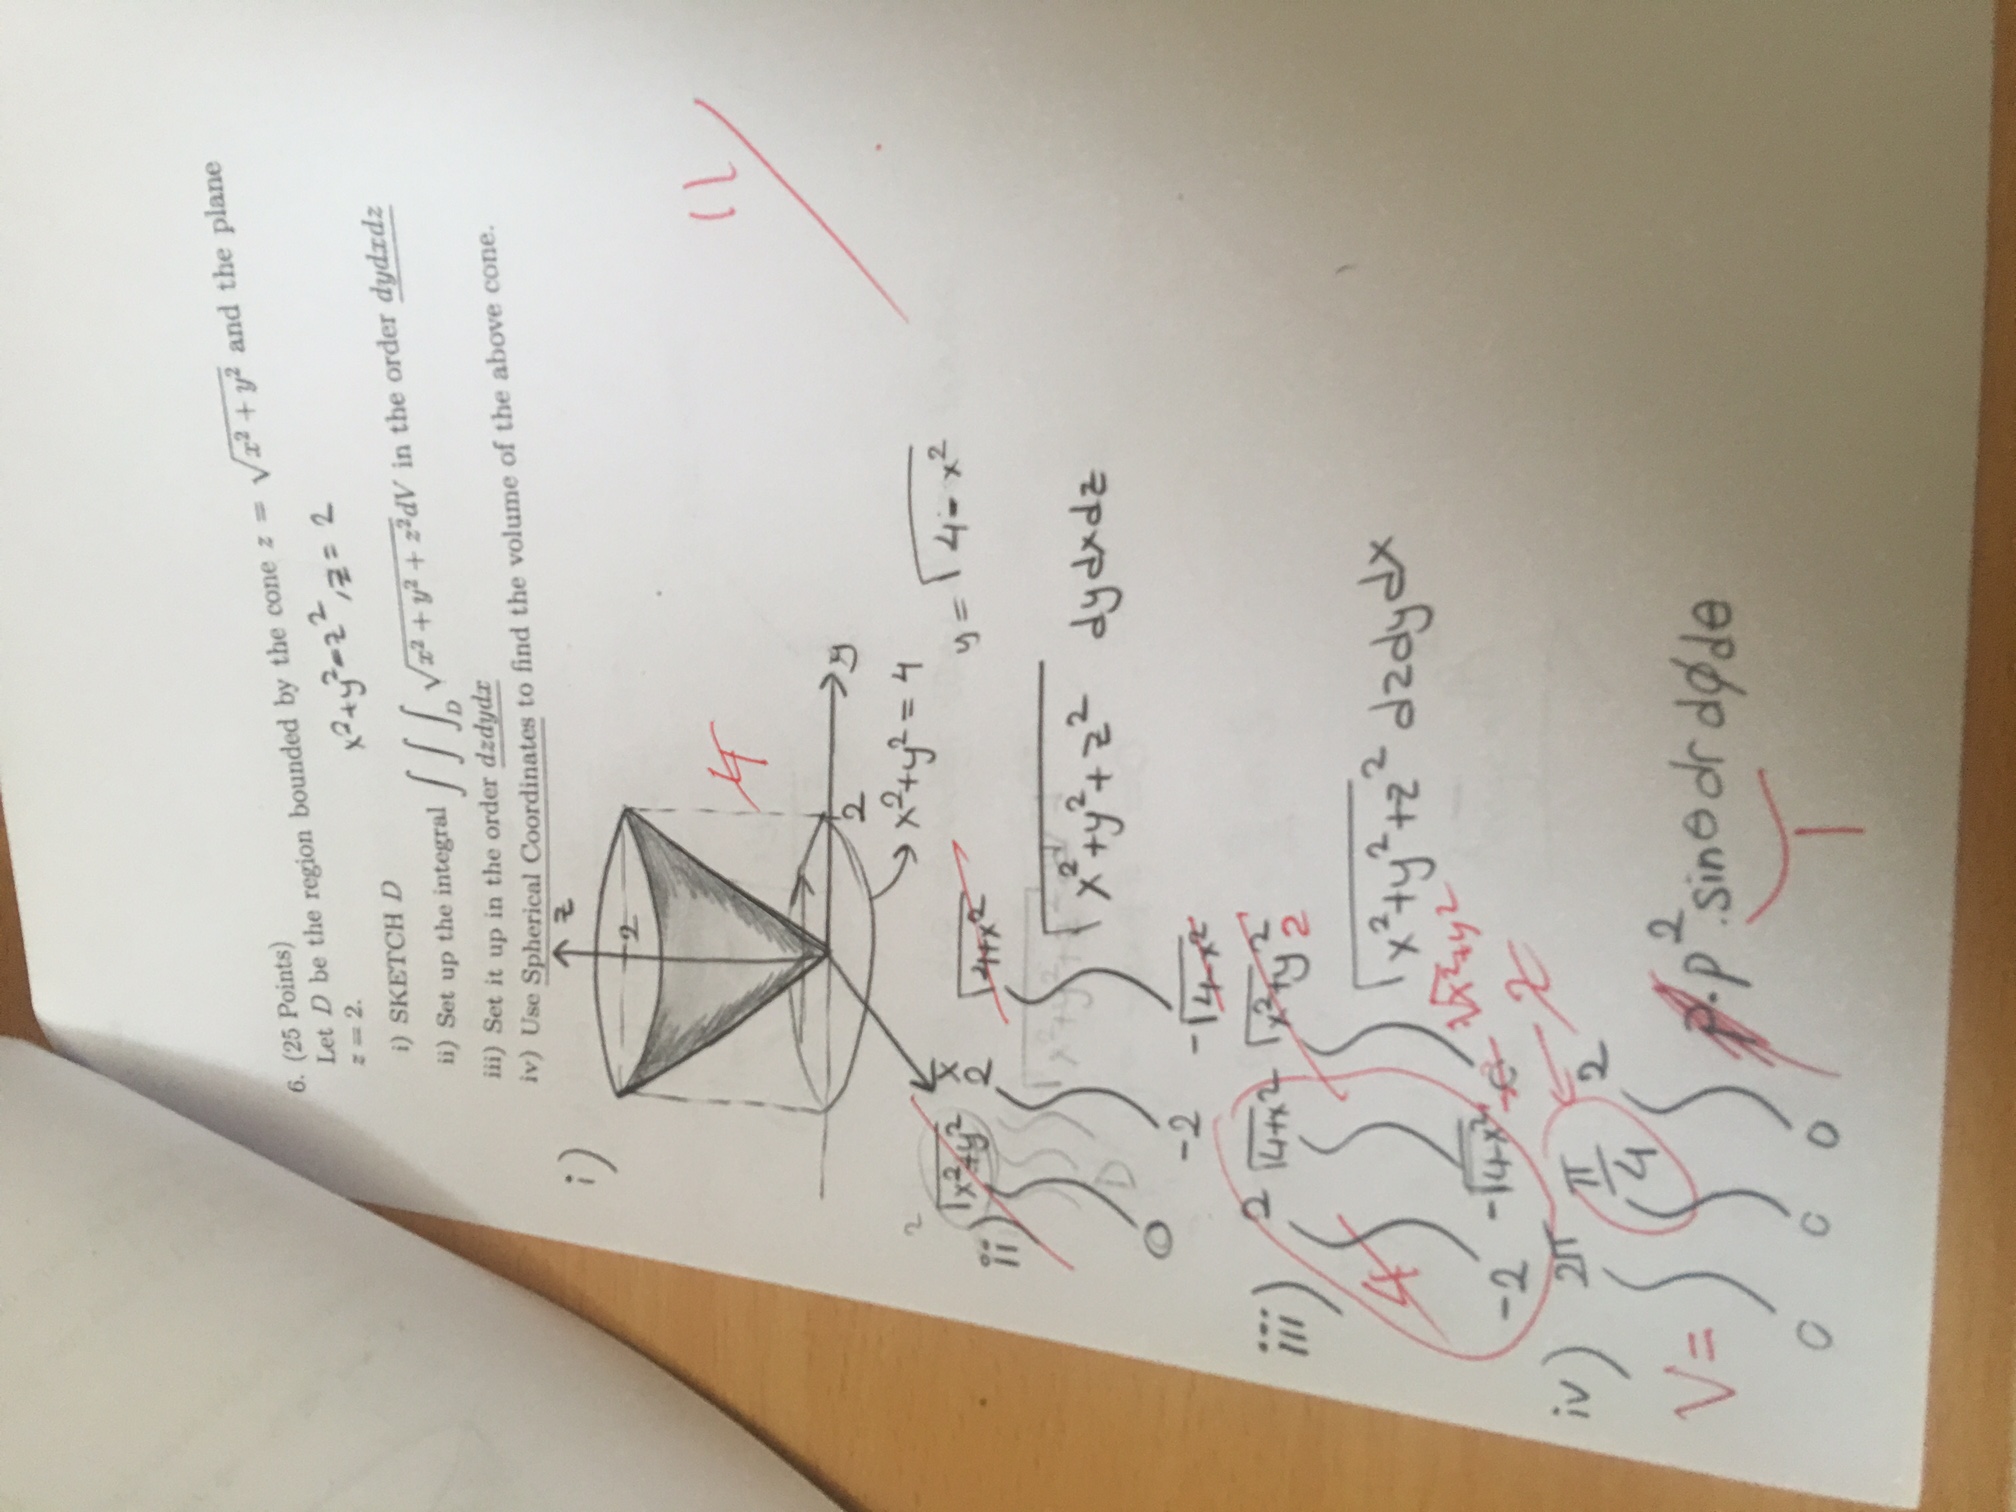 6. (25 Points)
Let D be the region bounded by the cone z = √(x² + y²) and the plane
z = 2.
x²+y²=z², z = 2
i) SKETCH D
ii) Set up the integral ∫∫∫_D √(x² + y² + z²)dV in the order dydxdz
iii) Set it up in the order dzdydx
iv) Use Spherical Coordinates to find the volume of the above cone.
i)
z
2
4
11
y
2
x²+y² = 4
x
y = √(4-x²)
2
ii) ∫_0^√(x²+y²) ∫_-2^2 ∫_-√(4-x²)^√(4+x²) √(x²+y²+z²) dydxdz
D
iii) ∫_-2^2 ∫_-√(4-x²)^√(4+x²) ∫_0^√(x²+y²) √(x²+y²+z²) dzdydx
2
4
√(x²+y²)
2
iv) V= ∫_0^2π ∫_0^π/4 ∫_0^2 p.p².sinθ dr dϕdθ
1